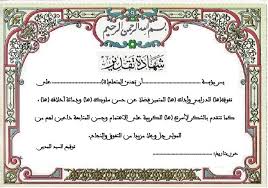 بسم الله الرحمن الرحيم
شهادة تقدير
يسر بوابة أن تهدي المتعلم(ة) على
تفوقه(ها) الدراسي وأدائه (ها) المتميز فضلا عن حسن سلوكه (ها) ودماثة أخلاقه (ها)
كما تتقدم بالشكر لأسرته (ها) الكريمة على الاهتمام وحسن المتابعة داعين لهم من
المولى عز وجل مزيدا من التفوق والنجاح.
توقيع السيد المدير
حرر بتاريخ: